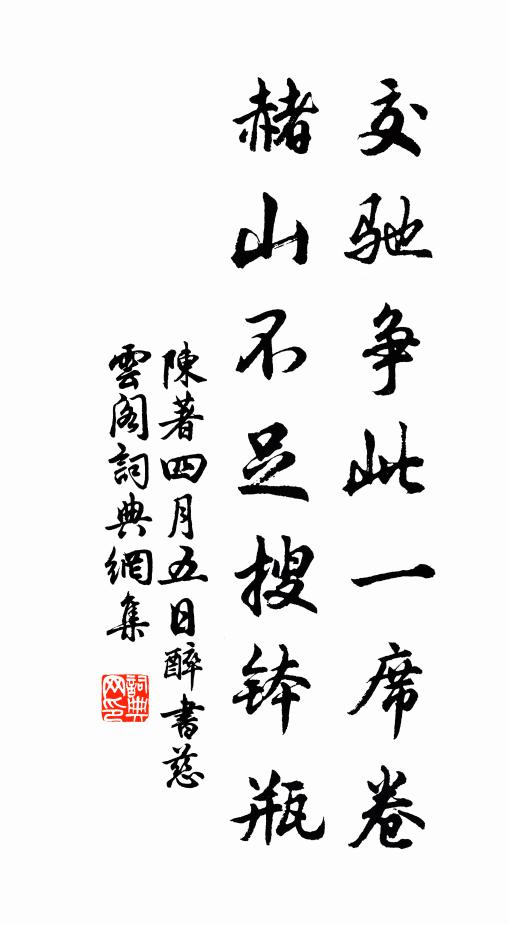 交驰争此一席卷
赭山不足搜钵瓶
陳著四月五日醉書慈
雲阁詞典網集
詞典网印